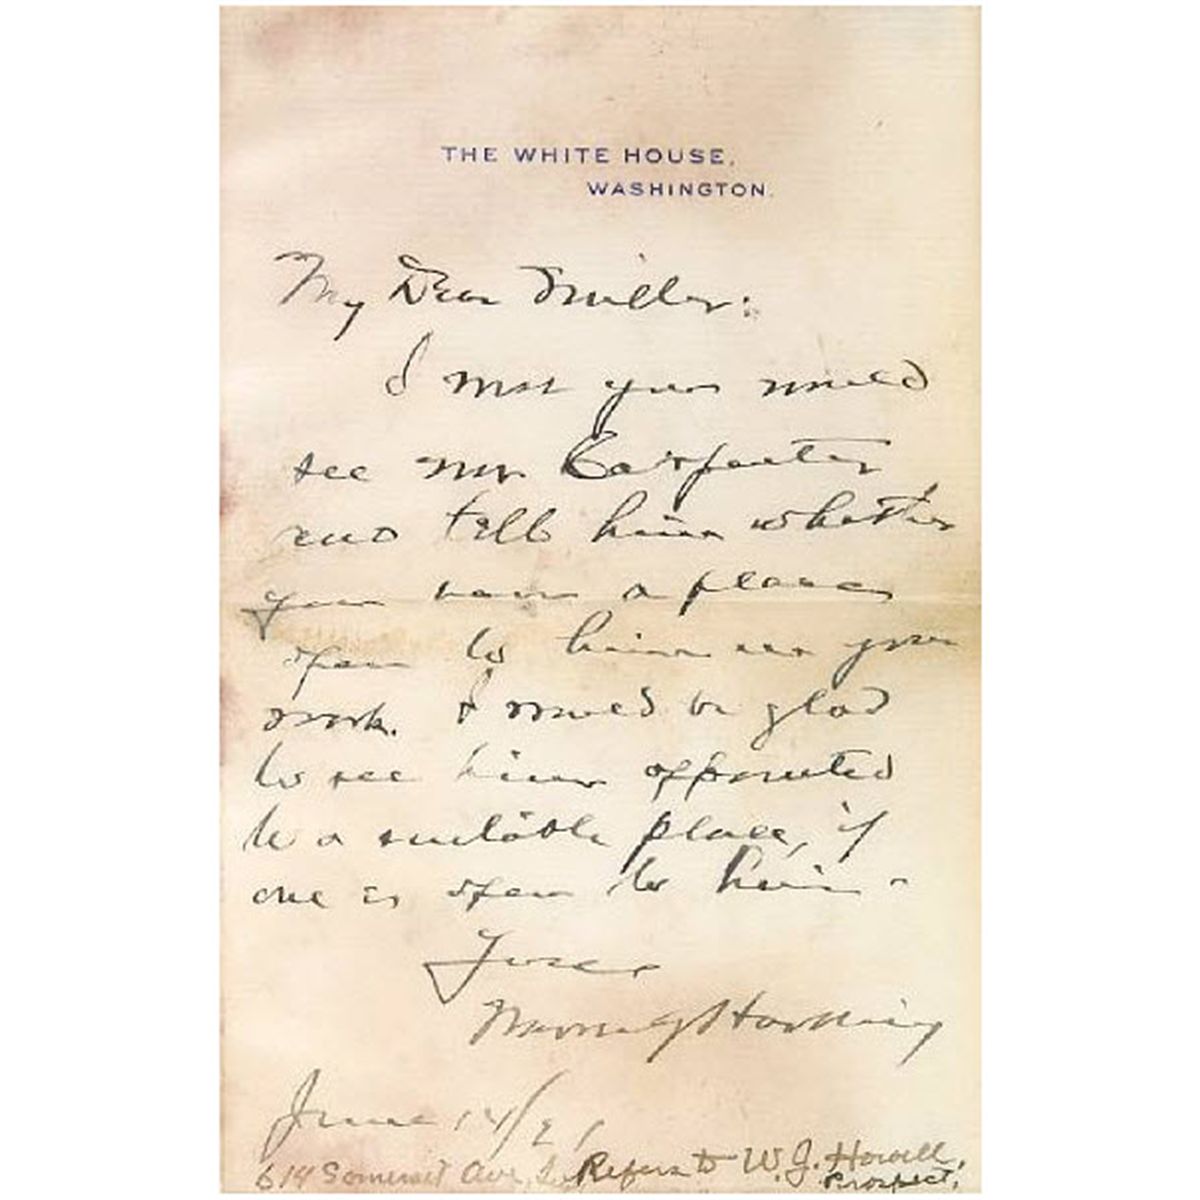 THE WHITE HOUSE,
WASHINGTON.
My Dear Miller:
I wish you would
see Mr Carpenter
and tell him whether
you have a place
open to him in your
work. I would be glad
to see him appointed
to a suitable place, if
one is open to him.
Yours
Warren G Harding
June 14/21
614 Somerset Ave, Refers to W. J. Howell,
Prospect,